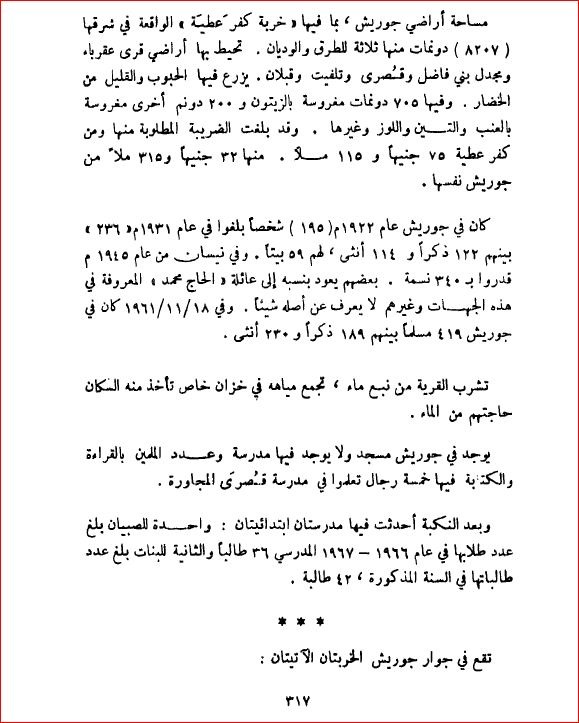 مساحة أراضي جوريش ، بما فيها « خربة كفر عطيّة » الواقعة في شرقها
( ٨٢٠٧ ) دونمات منها ثلاثة للطرق والوديان . تحيط بها أراضي قرى عقرباء
ومجدل بني فاضل وقُصرى وتلفيت وقبلان . يزرع فيها الحبوب والقليل من
الخضار . وفيها ٧٠٥ دونمات مغروسة بالزيتون و ٢٠٠ دونم أخرى مغروسة
بالعنب والتــين واللوز وغيرها . وقد بلغت الضريبة المطلوبة منها ومن
كفر عطية ٧٥ جنيهاً و ١١٥ مــلاً . منها ٣٢ جنيهاً و٣١٥ ملاً من
جوريش نفسها .
كان في جوريش عام ١٩٢٢م( ١٩٥ ) شخصاً بلغوا في عام ١٩٣١م« ٢٣٦ »
بينهم ١٢٢ ذكراً و ١١٤ أنثى ، لهم ٥٩ بيتاً . وفي نيسان من عام ١٩٤٥ م
قدروا بـ ٣٤٠ نسمة . بعضهم يعود بنسبه إلى عائلة « الحاج محمد » المعروفة في
هذه الجهــات وغيرهم لا يعرف عن أصله شيئاً . وفي ١٩٦١/١١/١٨ كان في
جوريش ٤١٩ مسلماً بينهم ١٨٩ ذكراً و ٢٣٠ أنثى .
تشرب القرية من نبع ماء ، تجمع مياهه في خزان خاص تأخذ منه السكان
حاجتهم من الماء .
يوجد في جوريش مسجد ولا يوجد فيها مدرسة وعــدد الملمين بالقراءة
والكتابة فيها خمسة رجال تعلموا في مدرسة قُصرَى المجاورة .
وبعد النكبة أحدثت فيها مدرستان ابتدائيتان : واحــدة للصبيان بلغ
عدد طلابها في عام ١٩٦٦ – ١٩٦٧ المدرسي ٣٦ طالباً والثانية للبنات بلغ عدد
طالباتها في السنة المذكورة ، ٤٢ طالبة .
* * *
تقع في جوار جوريش الخربتان الآتيتان :
٣١٧